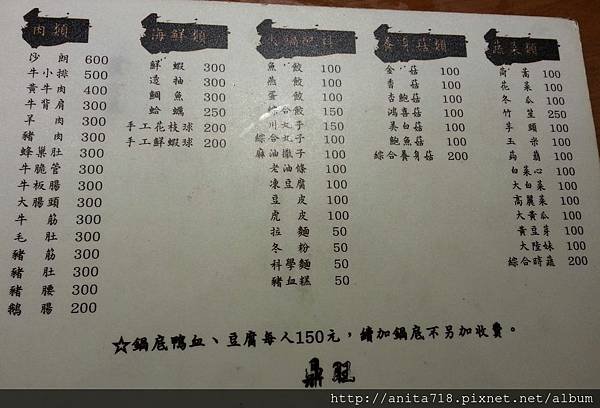 肉類
沙朗 600
牛小排 500
黃牛肉 400
牛背肩 300
羊肉 300
豬肉 300
蜂巢肚 300
牛脆管 300
牛板腸 300
大腸頭 300
牛筋 300
毛肚 300
豬筋 300
豬肚 300
豬腰 300
鵝腸 200
海鮮類
鮮蝦 300
透抽 300
鯛魚 300
蛤蠣 250
手工花枝球 200
手工鮮蝦球 200
火鍋配料
魚餃 100
燕餃 100
蛋餃 100
綜合餃 150
川丸子 100
綜合丸子 150
麻油撒子 100
老油條 100
凍豆腐 100
豆皮 100
虎皮 100
拉麵 50
冬粉 50
科學麵 50
豬血糕 50
養身菇類
金菇 100
香菇 100
杏鮑菇 100
鴻喜菇 100
美白菇 100
鮑魚菇 100
綜合養身菇 200
蔬菜類
茼蒿 100
花菜 100
冬瓜 100
竹笙 250
芋頭 100
玉米 100
萵苣 100
白菜心 100
大白菜 100
高麗菜 100
大黃瓜 100
黃豆芽 100
大陸妹 100
綜合時蔬 200
☆鍋底鴨血、豆腐每人150元，續加鍋底不另加收費。
鼎旺
http://anita718.pixnet.net/album